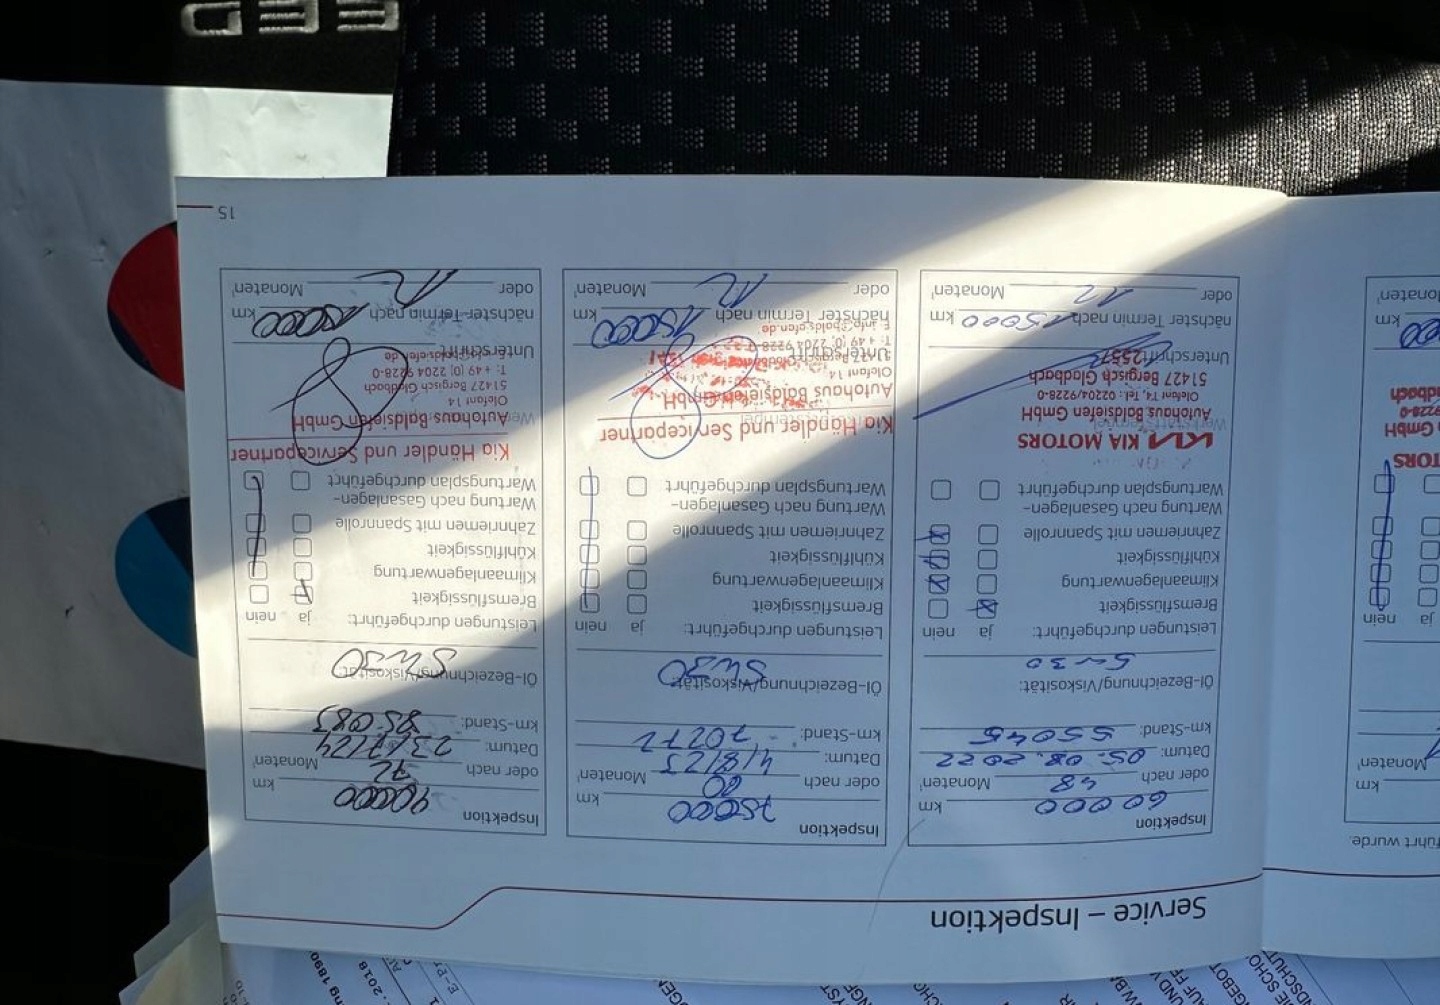 Service – Inspektion
führt wurde.
km
Monaten¹
nein
TORS
GmbH
9228-0
dbach
km
Monaten¹
Inspektion
60 000 km
oder nach 48 Monaten¹
Datum: 05.08.2022
km-Stand: 55045
Öl-Bezeichnung/Viskosität:
5w30
Leistungen durchgeführt: ja nein
Bremsflüssigkeit
Klimaanlagenwartung
Kühlflüssigkeit
Zahnriemen mit Spannrolle
Wartung nach Gasanlagen-
Wartungsplan durchgeführt
KIA KIA MOTORS
Autohaus Baldsiefen GmbH
Olefant 14, Tel.: 02204/9228-0
51427 Bergisch Gladbach
Unterschrift
nächster Termin nach 15000 km
oder 12 Monaten¹
Inspektion
75000 km
oder nach 60 Monaten¹
Datum: 4/8/23
km-Stand: 70272
Öl-Bezeichnung/Viskosität:
5W30
Leistungen durchgeführt: ja nein
Bremsflüssigkeit
Klimaanlagenwartung
Kühlflüssigkeit
Zahnriemen mit Spannrolle
Wartung nach Gasanlagen-
Wartungsplan durchgeführt
Kia Händler und Servicepartner
Autohaus Baldsiefen GmbH
Olefant 14
51427 Bergisch Gladbach
T: +49 (0) 2204 9228-0
Unterschrift
nächster Termin nach 15000 km
oder 12 Monaten¹
Inspektion
90000 km
oder nach 72 Monaten¹
Datum: 23/7/24
km-Stand: 85083
Öl-Bezeichnung/Viskosität:
5W30
Leistungen durchgeführt: ja nein
Bremsflüssigkeit
Klimaanlagenwartung
Kühlflüssigkeit
Zahnriemen mit Spannrolle
Wartung nach Gasanlagen-
Wartungsplan durchgeführt
Kia Händler und Servicepartner
Autohaus Baldsiefen GmbH
Olefant 14
51427 Bergisch Gladbach
T: +49 (0) 2204 9228-0
Unterschrift
nächster Termin nach 15000 km
oder 12 Monaten¹
15